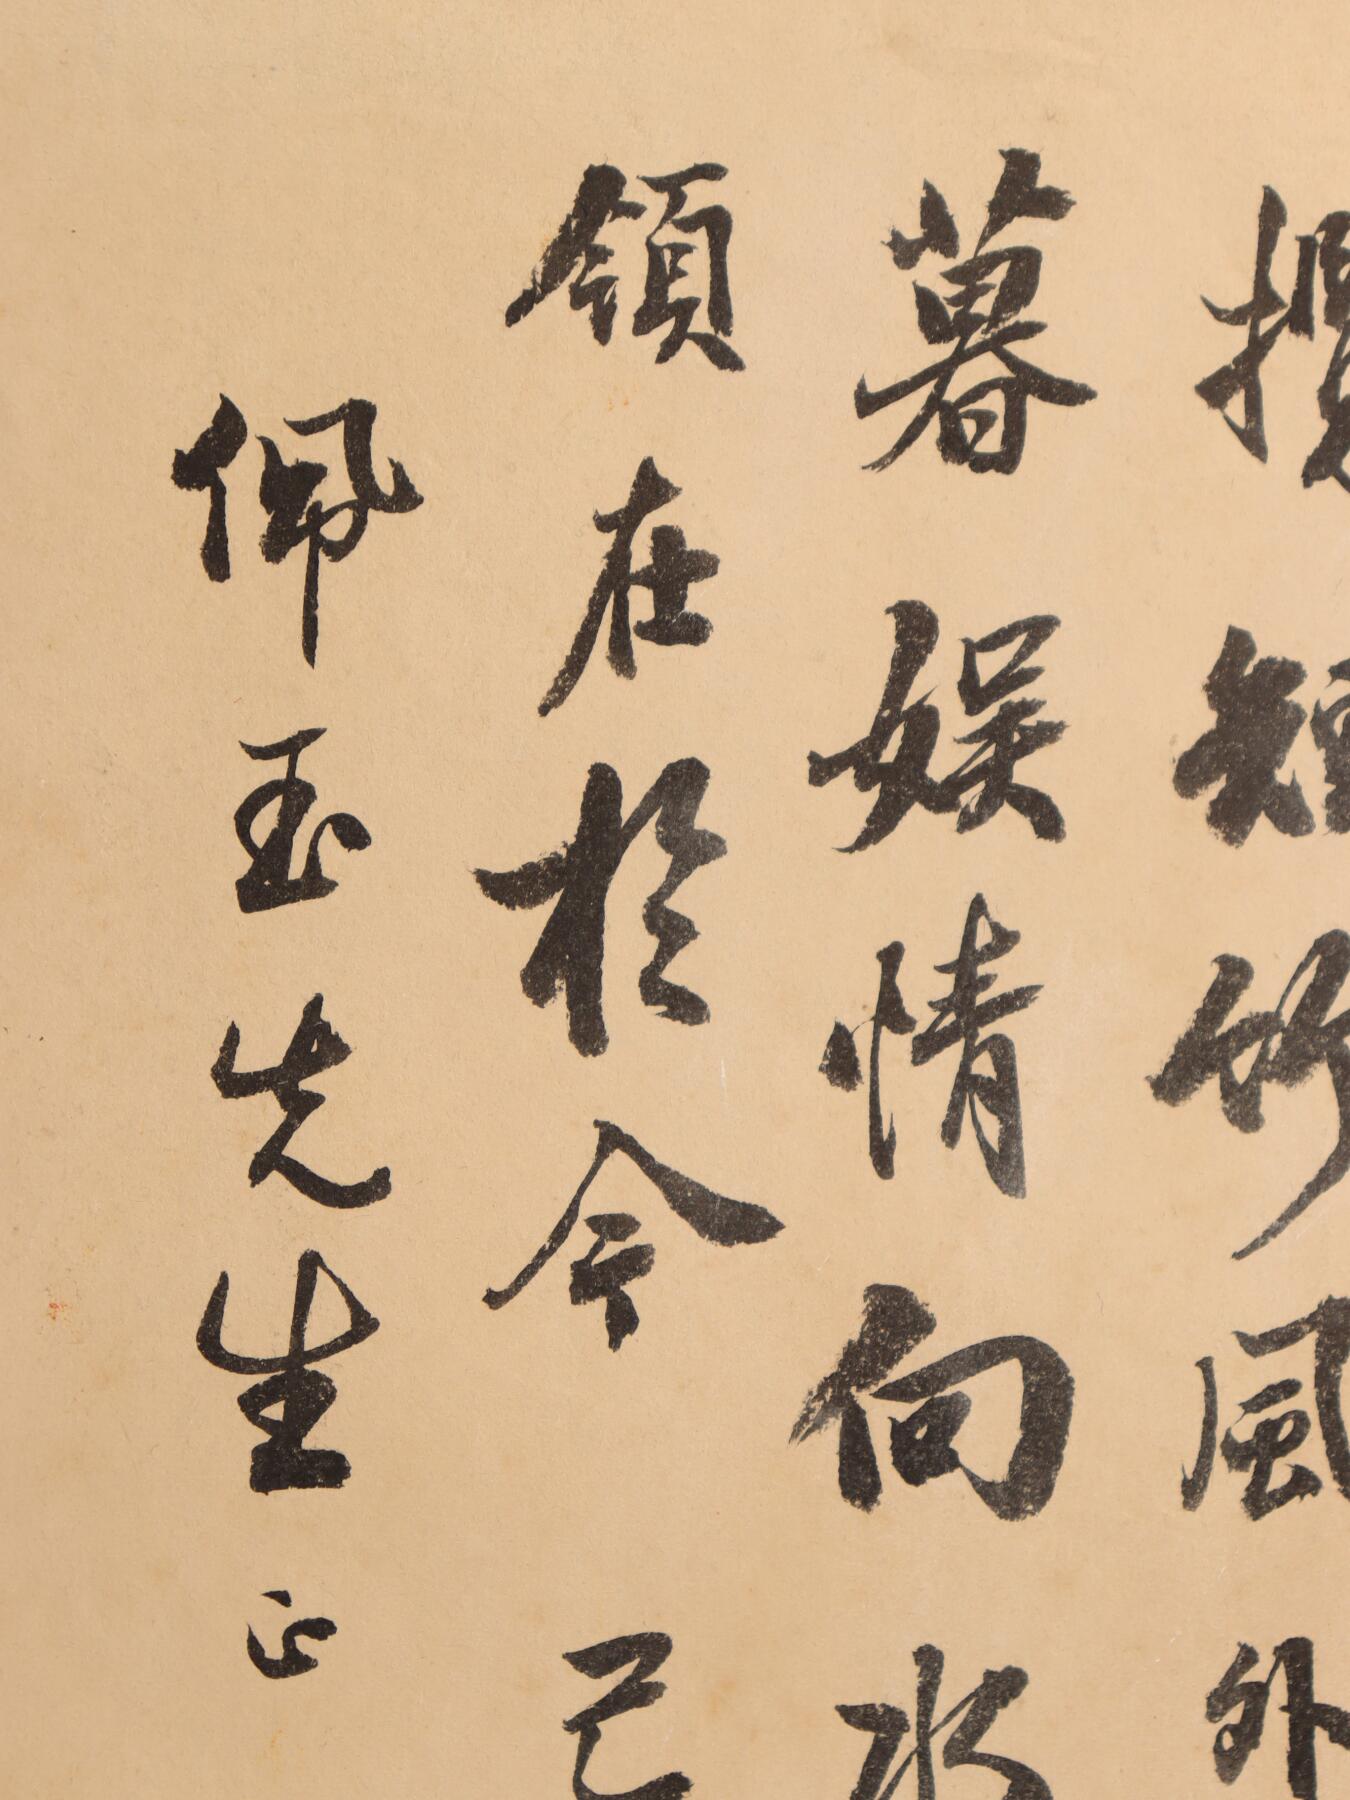 短竹風外
暮娱情向水
領在於今己
佩玉先生正